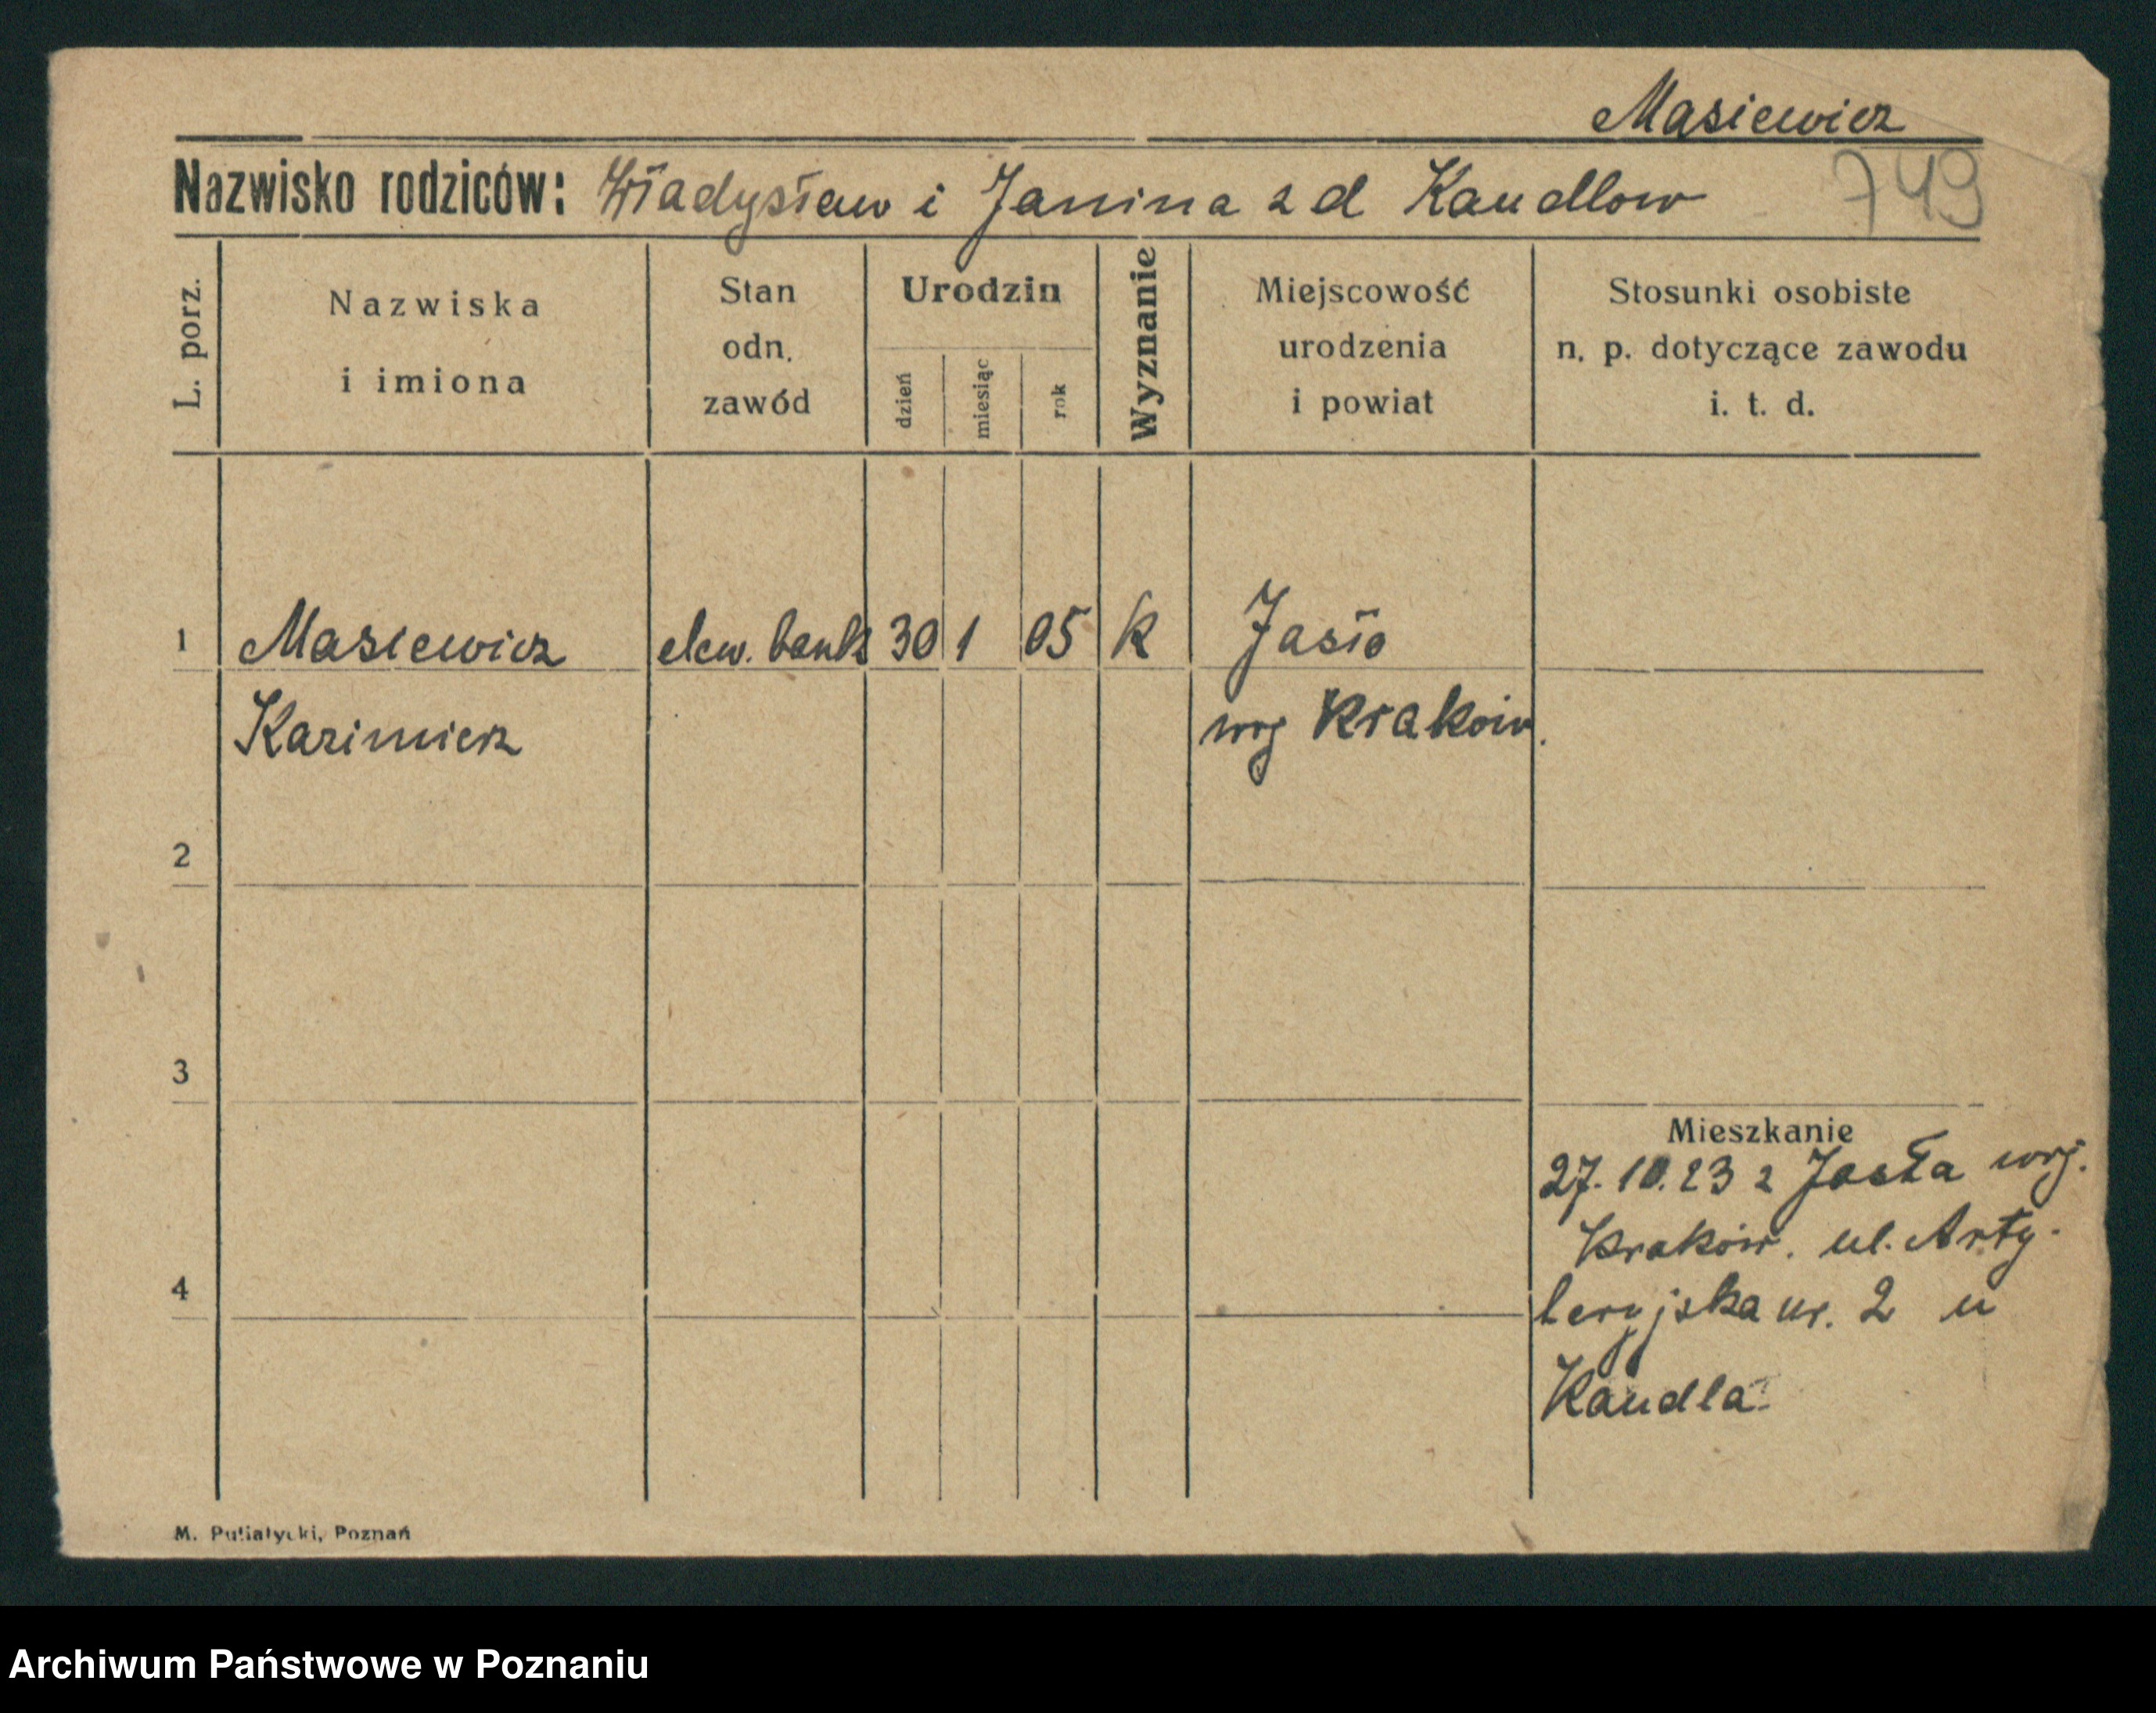 Masiewicz
Nazwisko rodziców: Władysław i Janina z d Kaudlow 749
L. porz.
Nazwiska
i imiona
Stan
odn.
zawód
Urodzin
dzień
miesiąc
rok
Wyznanie
Miejscowość
urodzenia
i powiat
Stosunki osobiste
n. p. dotyczące zawodu
i. t. d.
1 Masiewicz elew. bank 30 1 05 K Jasło
Kazimierz woj Kraków.
2
3
4
Mieszkanie
27.10.23 z Jasła woj.
Kraków. ul. Arty-
leryjska nr. 2 u
Kaudla.
M. Putiatycki, Poznań
Archiwum Państwowe w Poznaniu